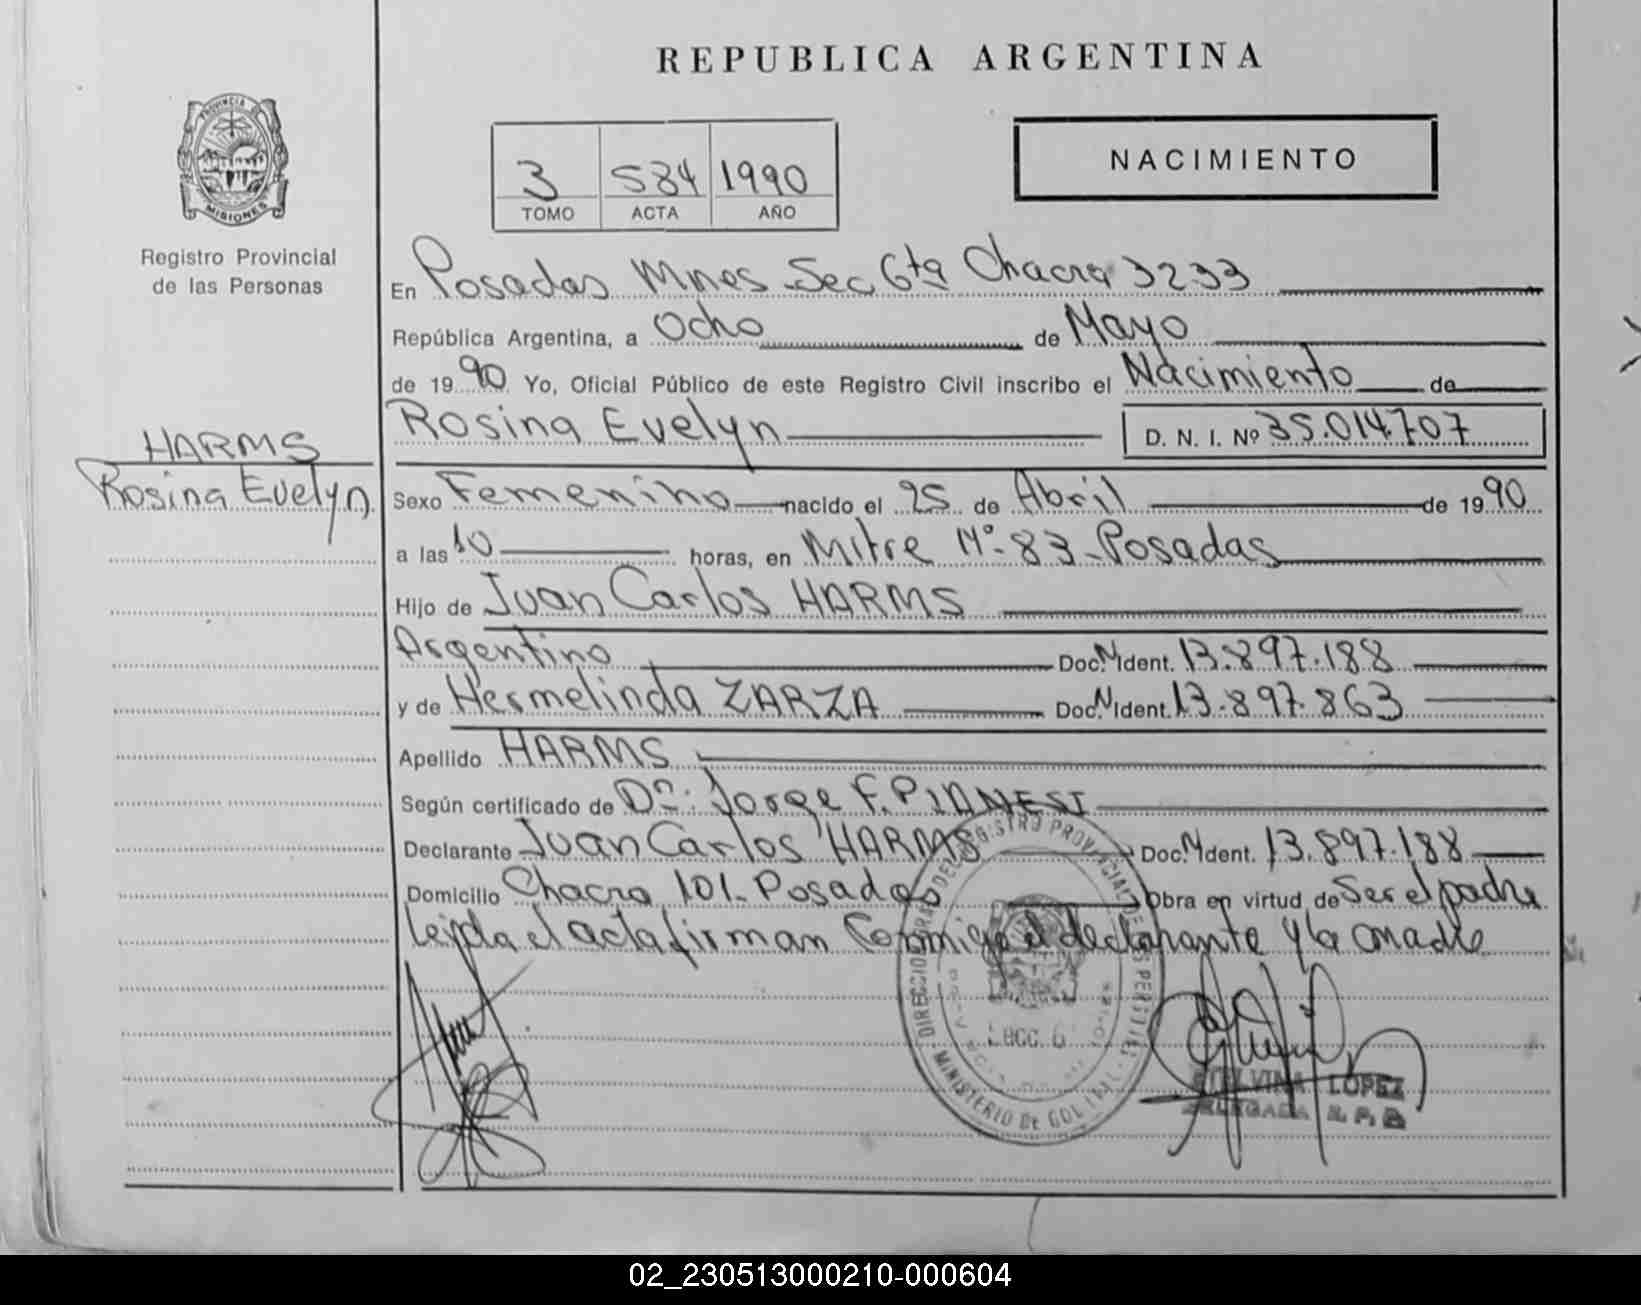 REPUBLICA ARGENTINA
PROVINCIA DE
MISIONES
Registro Provincial
de las Personas
3 584 1990
TOMO ACTA AÑO
NACIMIENTO
En Posadas Mnes Sec 6ta Chacra 3233
República Argentina, a Ocho de Mayo
de 1990 Yo, Oficial Público de este Registro Civil inscribo el Nacimiento de
Rosina Evelyn D. N. I. Nº 35.014707
HARMS
Rosina Evelyn
Sexo Femenino nacido el 25 de Abril de 1990
a las 10 horas, en Mitre Nº 83 - Posadas
Hijo de Juan Carlos HARMS
Argentino Doc. N Ident. 13.897.188
y de Hermelinda ZARZA Doc. N Ident. 13.897.863
Apellido HARMS
Según certificado de Dr. Jorge F. PIANESI
Declarante Juan Carlos HARMS Doc. N Ident. 13.897.188
Domicilio Chacra 101 - Posadas Obra en virtud de Ser el padre
Leida el acta firman Conmigo el declarante y la madre
DIRECCION GRAL DEL REGISTRO PROVINCIAL DE LAS PERSONAS
MINISTERIO DE
SECC. 6
LOPEZ
DELEGADA R. P. P.
02_230513000210-000604